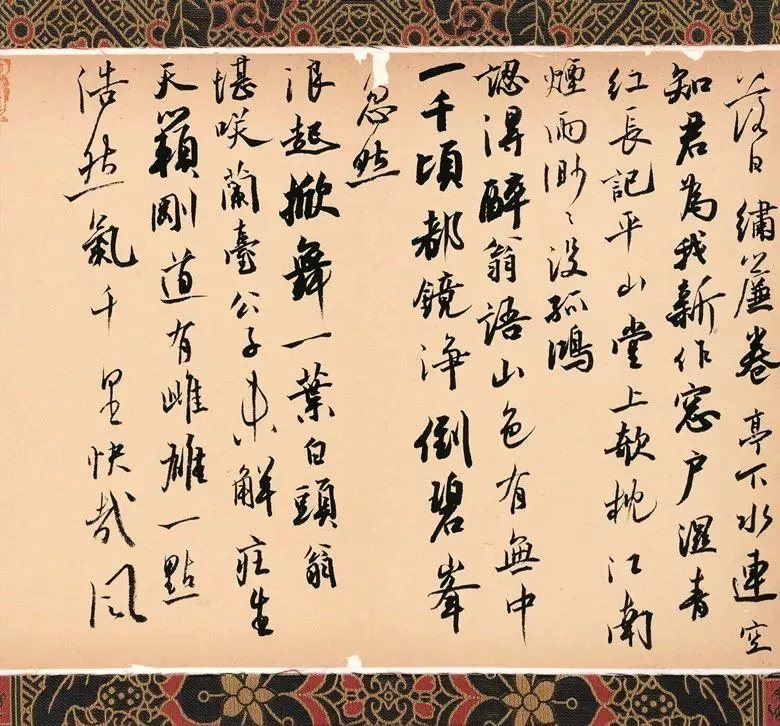 落日繡簾卷亭下水連空
知君為我新作窓户濕青
紅長記平山堂上欹枕江南
煙雨渺〻没孤鴻
認得醉翁語山色有無中
一千頃都鏡浄倒碧峯
忽然
浪起掀舞一葉白頭翁
堪咲蘭臺公子未解莊生
天籟剛道有雌雄一點
浩然氣千里快哉風